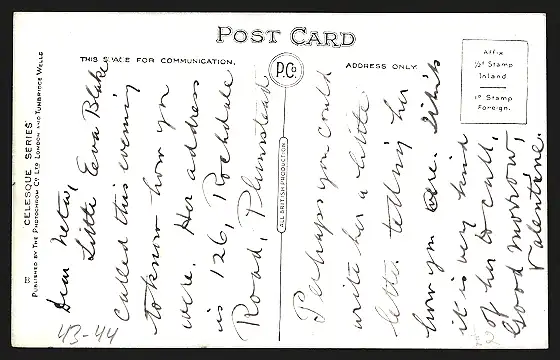 POST CARD
THIS SPACE FOR COMMUNICATION.
ADDRESS ONLY.
P.Co
Affix
½ᵈ Stamp
Inland
1ᵈ Stamp
Foreign.
"CELESQUE SERIES"
PUBLISHED BY THE PHOTOCHROM CO LTD LONDON AND TUNBRIDGE WELLS
ALL BRITISH PRODUCTION
Dear
Little Eva Blake
called this evening
to know how you
were. Her address
is 126, Rochdale
Road, Plumstead
Perhaps you could
write her a little
letter telling her
how you are.
it is very kind
of her to call.
Good morrow,
Valentine.
43-44